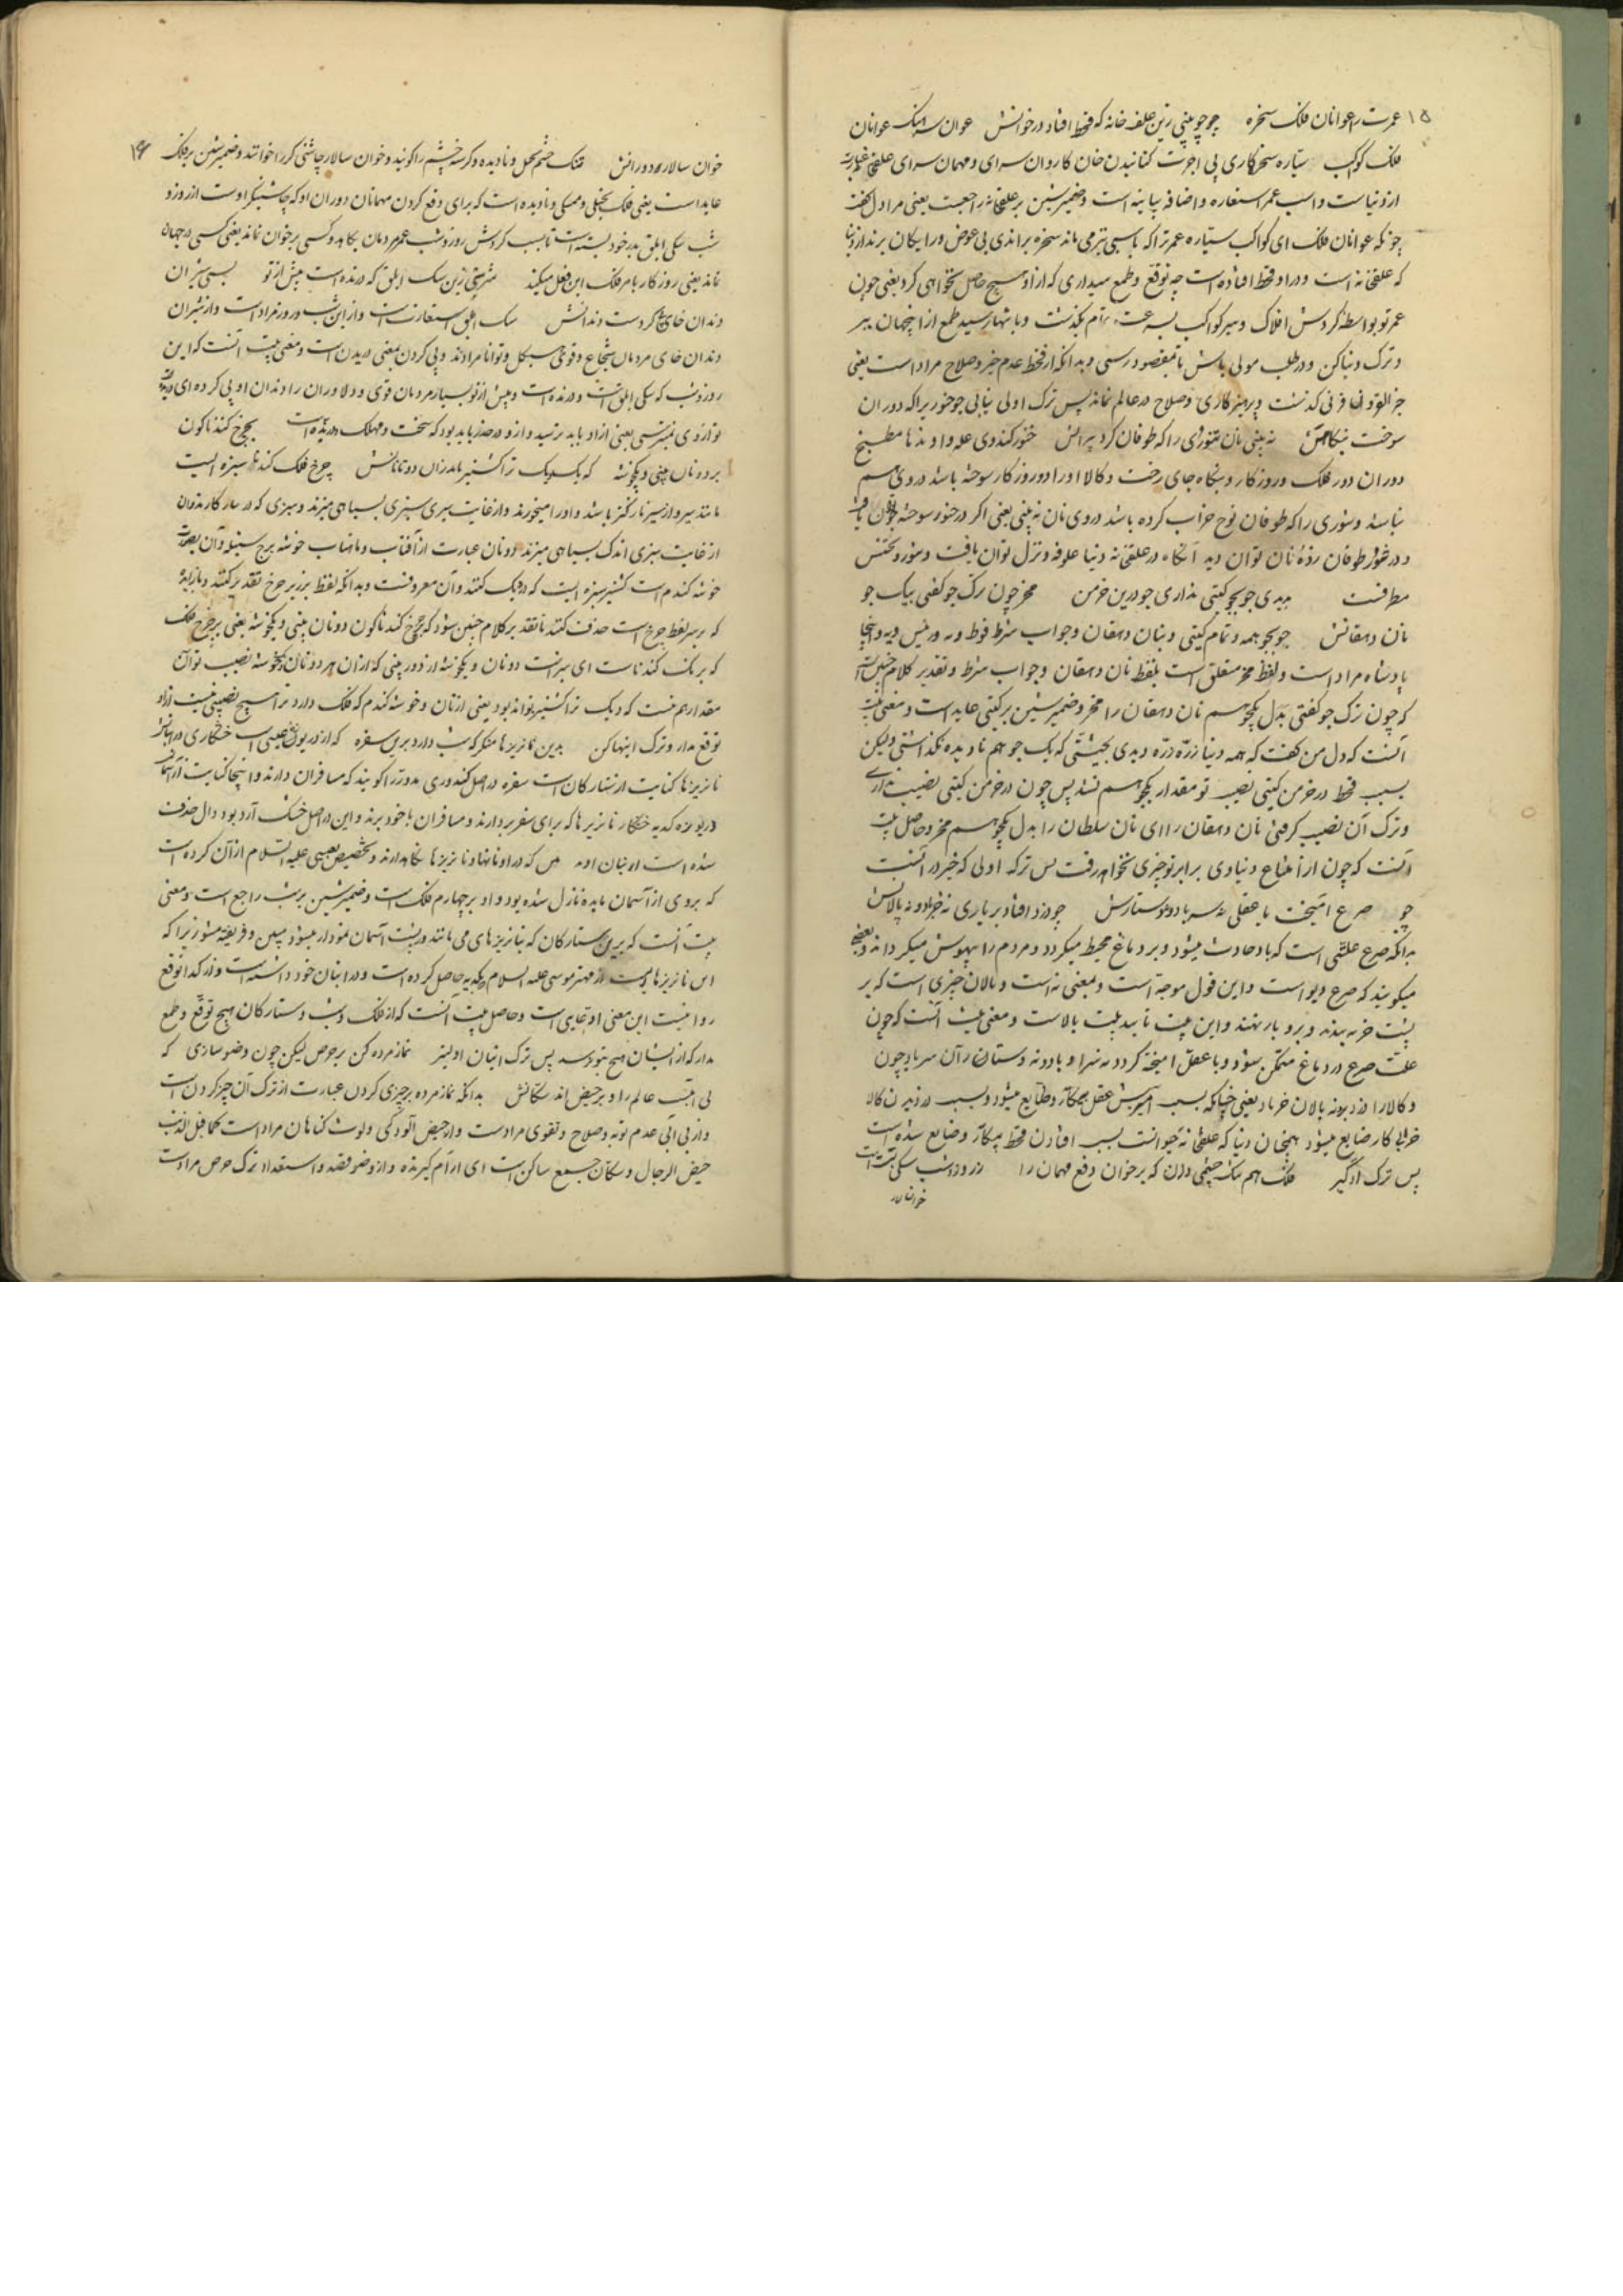 ۱۵ عمرت را عوانان فلک سخره چو جو بینی زین علف خانه که قحط افتاد در خوانش عوان سرهنگ عوانان
فلک کواکب سیاره سخره کاری بی اجرت کنانیدن خان کاروان سرای و مهمان سرای علفخانه عبارت
از دنیاست و اسب عمر استعاره و اضافه بیانیه است و ضمیر شین بر علفخانه راجعست یعنی مرا دل گفت
چونکه عوانان فلک ای کواکب سیاره عمر ترا که باسبی تیز می ماند سخره براندی بی عوض و رایگان برند از دنیا
که علفخانه است و در او قحط افتاده است چه توقع و طمع میداری که از او هیچ حاصل نخواهی کرد یعنی چون
عمر تو بواسطه گردش افلاک و سیر کواکب بسرعت تمام بگذشت و بانتها رسید طمع از اینجهان ببر
و ترک دنیا کن و در طلب مولی باش تا بمقصود رسی و بدانکه از قحط عدم خیر و صلاح مراد است یعنی
خیر القرون قرنی گذشت و پرهیزکاری و صلاح در عالم نماند پس ترک اولی نیابی جو خنور براکه دوران
سوخت بنگاهش نه بینی نان تنوری را که طوفان کرد ویرانش خنور کندوی غله و اوندها مطبخ
دوران دور فلک و روزگار و بنگاه جای رخت و کالا او را دور روزگار سوخته باشد در وی هم
نباشد و تنوری را که طوفان نوح خراب کرده باشد در وی نان نه بینی یعنی اگر در خنور سوخته جو توان یافت
و در تنور طوفان زده نان توان دید آنگاه در علفخانه دنیا علوفه و نزل توان یافت
مطرفست بدیدی جو بجو گیتی نداری جو درین خرمن مخر چون ترک جو گفتی بیک جو
نان دهقانش جو بجو همه و تمام گیتی دنیا دهقان و جواب شرط
پادشاه مراد است و لفظ مخر متعلق است بلفظ نان دهقان و جواب شرط و تقدیر کلام چنین است
که چون ترک جو گفتی بدل یکجو هم نان دهقان را مخر و ضمیر شین بر گیتی عاید است و معنی بیت
آنست که دل من گفت که همه دنیا ذره ذره دیدی بحیثیتی که یک جو هم نادیده نگذاشتی ولیکن
بسبب قحط در خرمن گیتی نصیب تو مقدار یکجو هم نشد پس چون در خرمن گیتی نصیب نداری
و ترک آن نصیب گرفتی نان دهقان را ای نان سلطان را بدل یکجو هم مخر و حاصل بیت
آنست که چون از متاع دنیاوی برابر تو چیزی نخواهد رفت پس ترک اولی که خیر در آنست
چو صرع آمیخت با عقلی نه سر باد و نه دستارش چو دزد افتاد بر باری نه خر باد و نه پالانش
بدانکه صرع علتی است که باد حادث میشود و بر دماغ محیط میگردد و مردم را بیهوش میگرداند و بعضی
میگویند که صرع دیو است و این قول موجه است و پالان چیزی است که بر
پشت خر نهند و برو بار نهند و این بیت تأیید بیت بالاست و معنی بیت آنست که چون
علت صرع در دماغ متمکن شود و با عقل آمیخته گردد نه سر او باد و نه دستار آن سر باد چون
و کالا را دزد برد نه پالان خر باد یعنی چنانکه بسبب آمیزش عقل بیکار و ضایع میشود و بسبب دزدیدن کالا
خر از کار ضایع میشود همچنان دنیا که علفخانه حیوانست بسبب افتادن قحط بیکار و ضایع شده است
پس ترک او گیر فلک هم تنگ چشمی دان که بر خوان دفع مهمان را ز روز و شب سگی بسته است
خوان سالار
۱۶ خوان سالار دورانش تنگ چشم بخیل و نادیده و گرسنه چشم را گویند و خوان سالار چاشنی گیر را خوانند و ضمیر شین بر فلک
عاید است یعنی فلک بخیلی و ممسکی و نادیده است که برای دفع کردن مهمانان دوران او که چاشنیگر اوست از روز و
شب سگی ابلق بدر خود بسته است تا بسبب گردش روز و شب عمر مردمان بکاهد و کسی بر خوان نماند یعنی کسی در جهان
نماند یعنی روزگار بامر فلک این فعل میکند مترس زین سگ ابلق که درنده است پیش از تو بسی شیران
دندان خای را پی کردست دندانش سگ ابلق استعارتست و از این شب و روز مراد است و از شیران
دندان خای مردمان شجاع و قوی هیکل و توانا مرادند و پی کردن بمعنی دریدن است و معنی بیت آنست که این
روز و شب که سگی ابلق است و درنده است و پیش از تو بسیار مردمان قوی و دلاوران را دندان او پی کرده ای دریده
تو از وی میترسی یعنی از او باید ترسید و از و در حذر باید بود که سخت و مهلک درنده است بچرخ گندناگون
بر دو نان بینی و یکخوشه که یک دیگ ترا گشنیز ناید زان دو تا نانش چرخ فلک گندنا سبزه ایست
مانند سیر و از سیر نازکتر باشد و او را میخورند و از غایت سبزی بسیاهی میزند و سبزی که در
از غایت سبزی اندک بسیاهی میزند دو نان عبارت از آفتاب و ماهتاب خوشه برج سنبله و آن بصورت
خوشه گندم است گشنیز سبزه ایست که در دیگ کنند و آن معروفست و بدانکه لفظ
که بر سر لفظ چرخ است حذف کنند تا تقدیر کلام چنین شود که چرخ گندناگون دو نان بینی و یکخوشه یعنی بر چرخ فلک
که برنگ گندناست ای سبز است دو نان و یکخوشه از دور بینی که از آن هر دو نان و یکخوشه نصیب تو آن
مقدار هم نیست که دیگ ترا گشنیز تواند بود یعنی از نان و خوشه گندم که فلک دارد ترا هیچ نصیبی نیست از او
توقع مدار و ترک اینها کن بدین نان ریزه ها منگر که شب دارد برین سفره که از دریوزه عیسی است خشکاری در انبانش
نان ریزه ها کنایت از ستارگان است سفره در اصل کندوری مدور را گویند که مسافران دارند و اینجا کنایت از آسمان
دریوزه گدیه خشکار نان ریزها که برای سفر بردارند و مسافران با خود برند و این در اصل خشک آرد بود دال حذف
شده است و تخصیص بعیسی علیه السلام از آن کرده است
که بر وی از آسمان مایده نازل شده بود و او بر چهارم فلک است و ضمیر شین بر شب راجع است و معنی
بیت آنست که برین ستارگان که بنان ریزهای می مانند و بر پشت آسمان نمودار میشود مبین و فریفته مشو زیرا که
این نان ریزها علیه السلام بگدیه حاصل کرده است و در انبان خود داشته است و از گدا توقع
روا نیست این معنی ادعایی است و حاصل بیت آنست که از فلک و شب و ستارگان هیچ توقع و طمع
مدار که از ایشان هیچ بتو نرسد پس ترک ایشان اولیتر نماز مرده کن بر حرص لیکن چون وضو سازی که
بی آبیست عالم را و بر حیض اند سکانش بدانکه نماز مرده بر چیزی کردن عبارت از ترک آن چیز کردن است
و از بی آبی عدم توبه و صلاح و تقوی مرادست و از حیض آلودگی و لوث گناهان مراد است کما قیل الذنب
حیض الرجال و سکان جمع ساکن است ای آرام گیرنده و از وضو قصد و استعداد ترک حرص مرادست